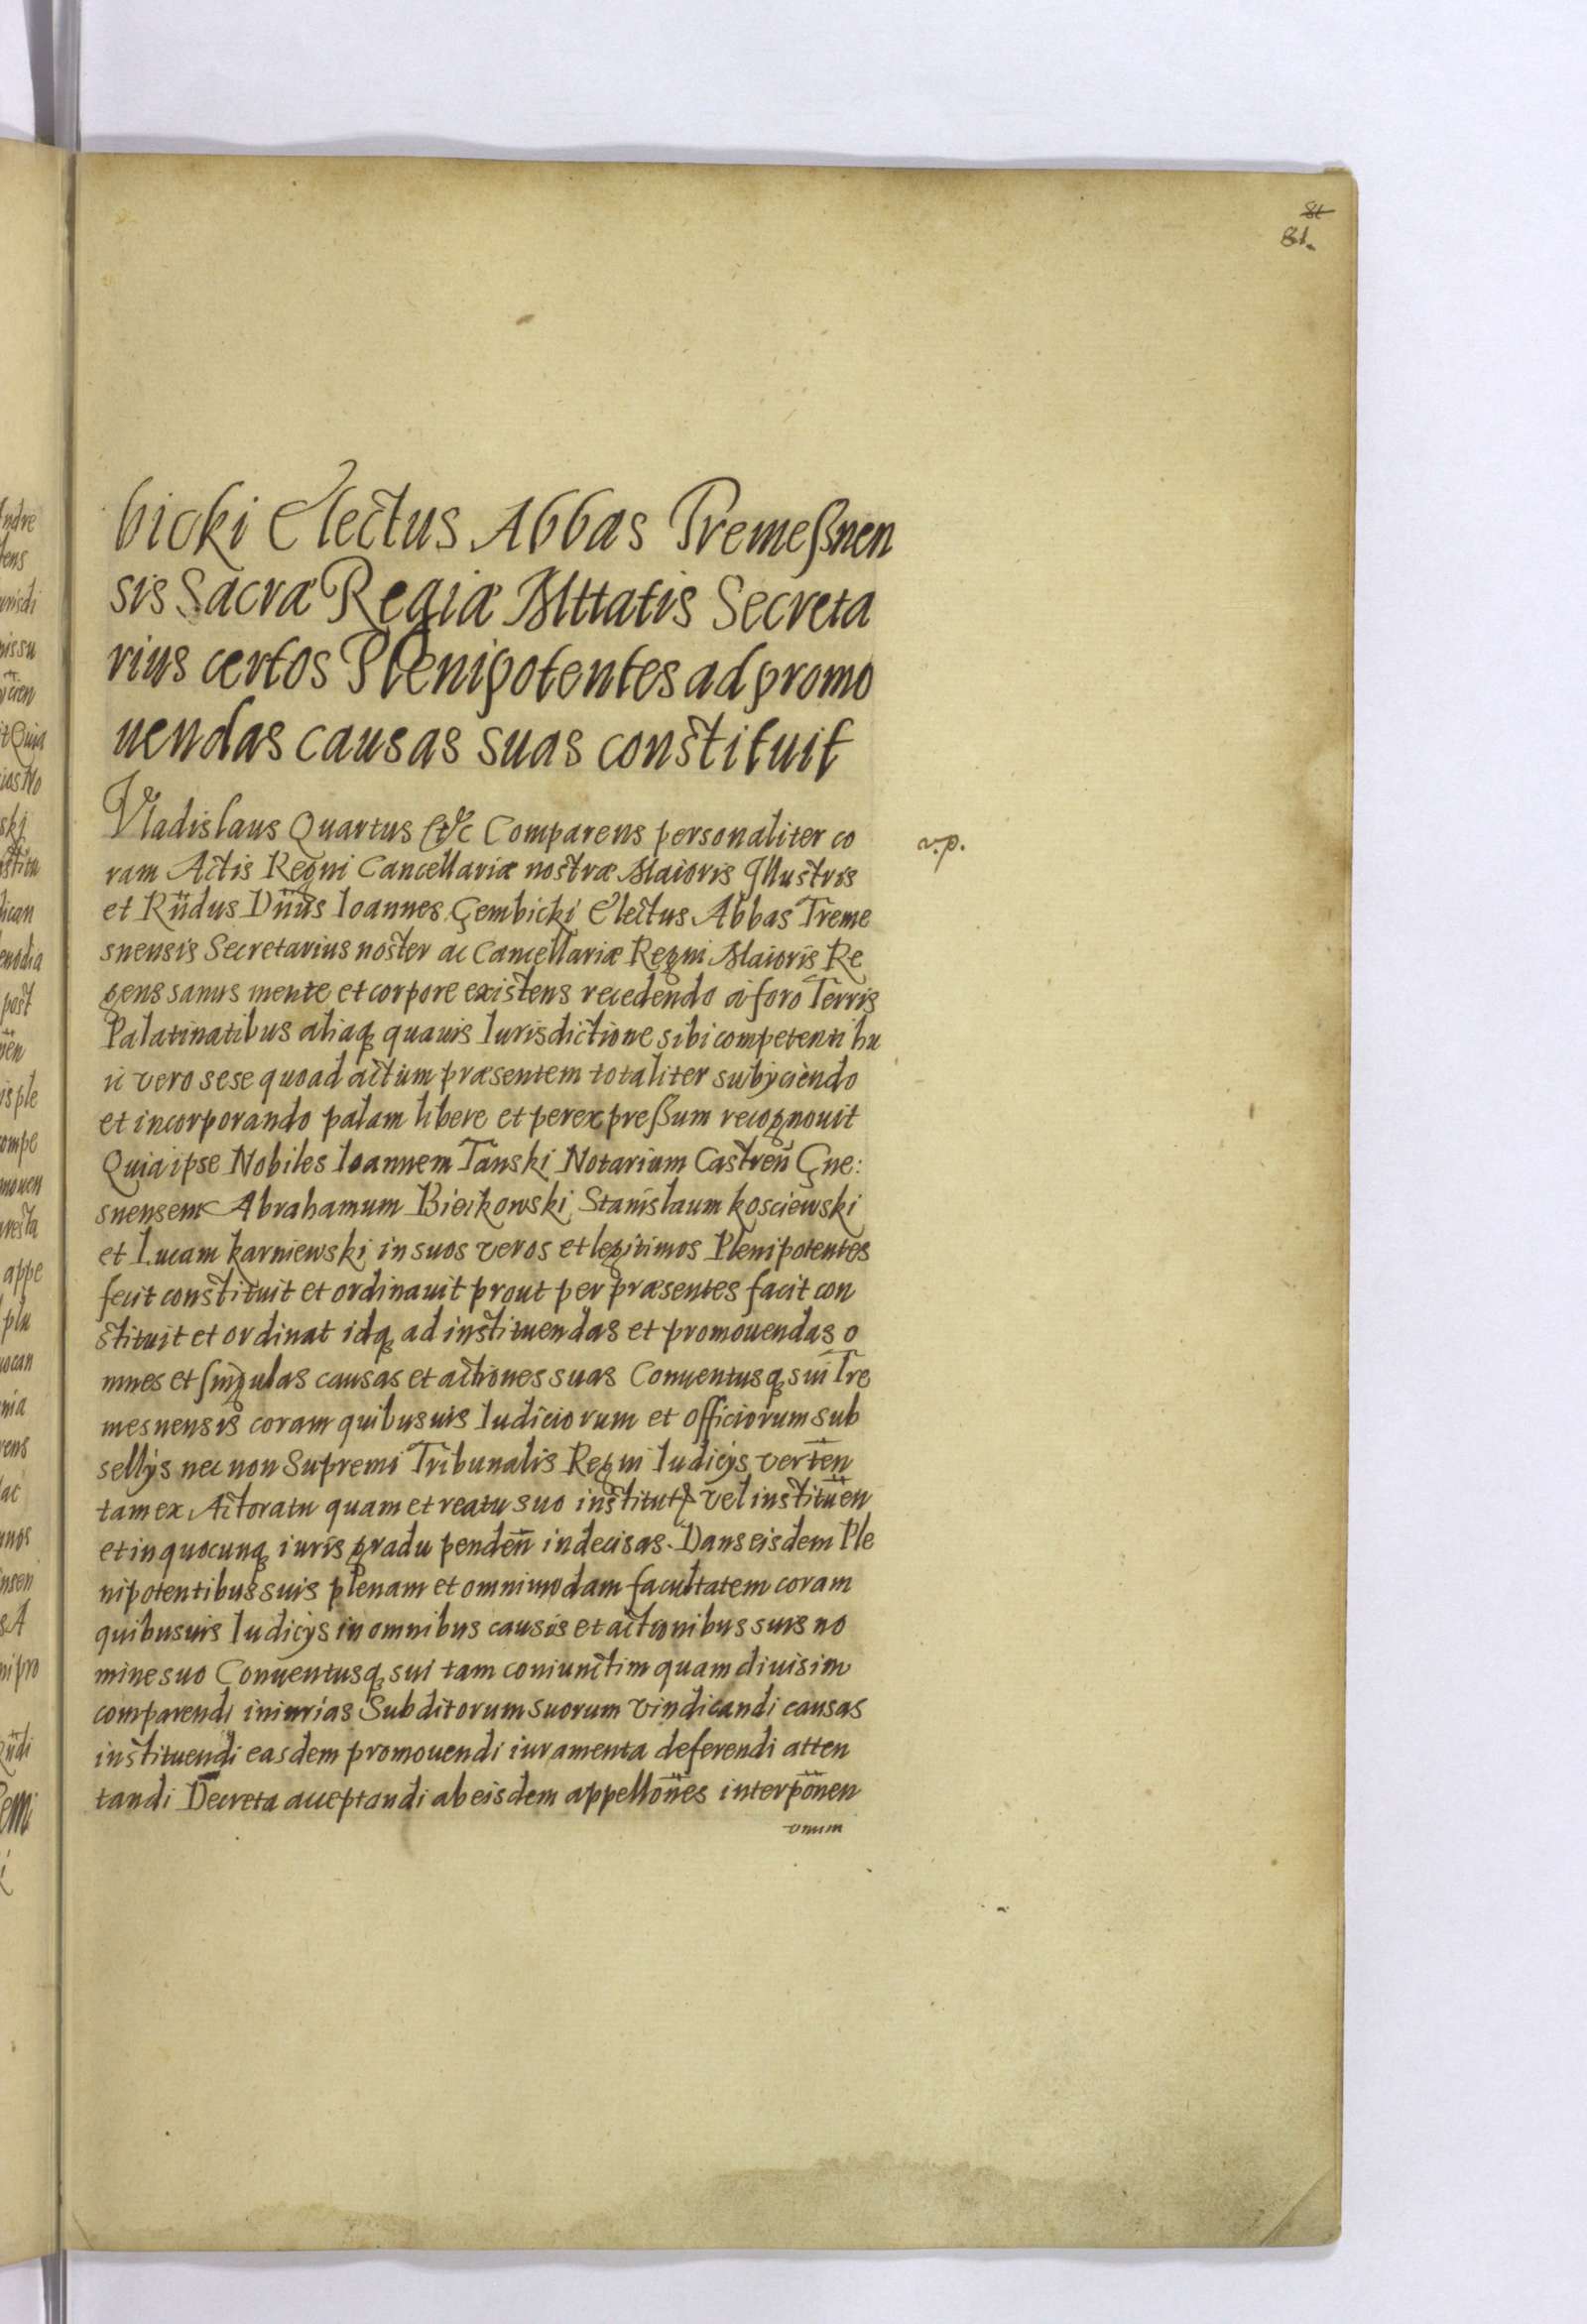 81.
bicki Electus Abbas Tremeßnen
sis Sacræ Regiæ Mttatis Secreta
rius certos Plenipotentes ad promo
uendas causas suas constituit
Vladislaus Quartus &c Comparens personaliter co
ram Actis Regni Cancellariæ nostræ Maioris Illustris
et Rn̈dus Dn̈us Ioannes Gembicki Electus Abbas Treme
snensis Secretarius noster ac Cancellariæ Regni Maioris Re
gens sanus mente et corpore existens recedendo à foro Terris
Palatinatibus aliaq quauis Iurisdictione sibi competenti hu
ic vero sese quoad actum præsentem totaliter subÿciendo
et incorporando palam libere et per expreßum recognouit
Quia ipse Nobiles Ioannem Tanski Notarium Castren̄ Gne:
snensem Abrahamum Bieikowski Stanislaum kosciewski
et Lucam karniewski in suos veros et legitimos Plenipotentes
fecit constituit et ordinauit prout per præsentes facit con
stituit et ordinat idq ad instituendas et promouendas o
mnes et singulas causas et actiones suas Conuentusq sui Tre
mesnensis coram quibusuis Iudiciorum et officiorum sub
sellÿs nec non Supremi Tribunalis Regni Iudicÿs verten̄
tam ex Actoratu quam et reatu suo institut vel institüen
et in quocunq iuris gradu penden̄ indecisas. Dans eisdem Ple
nipotentibus suis plenam et omnimodam facultatem coram
quibusuis Iudicÿs in omnibus causis et actionibus suis no
mine suo Conuentusq sui tam coniunctim quam diuisim
comparendi iniurias Subditorum suorum vindicandi causas
instituendi easdem promouendi iuramenta deferendi atten
tandi Decreta acceptandi ab eisdem appellon̈es interpön̄en